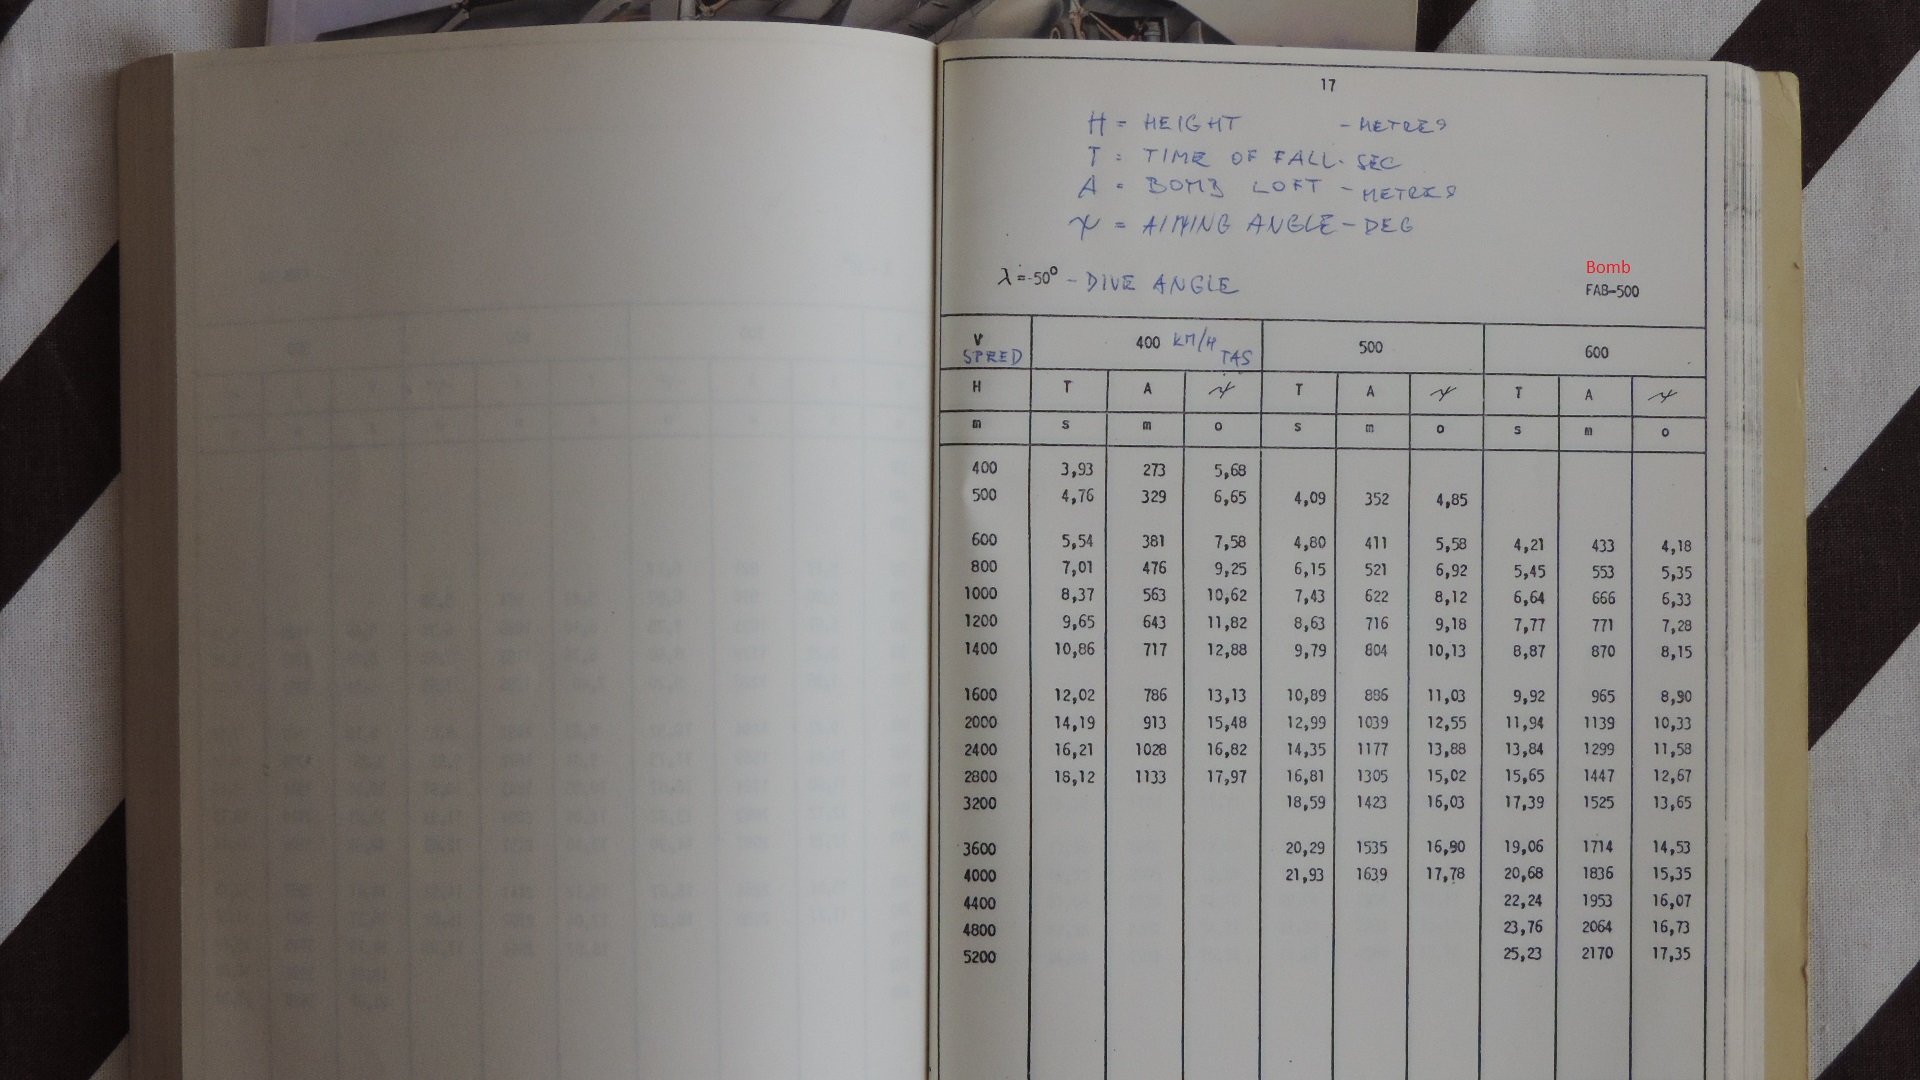 17
H = HEIGHT - METRES
T : TIME OF FALL - SEC
A = BOMB LOFT - METRES
ψ = AIMING ANGLE - DEG
λ =-50° - DIVE ANGLE
Bomb
FAB-500
V SPEED 400 KM/H TAS 500 600
H T A ψ T A ψ T A ψ
m s m o s m o s m o
400 3,93 273 5,68
500 4,76 329 6,65 4,09 352 4,85
600 5,54 381 7,58 4,80 411 5,58 4,21 433 4,18
800 7,01 476 9,25 6,15 521 6,92 5,45 553 5,35
1000 8,37 563 10,62 7,43 622 8,12 6,64 666 6,33
1200 9,65 643 11,82 8,63 716 9,18 7,77 771 7,28
1400 10,86 717 12,88 9,79 804 10,13 8,87 870 8,15
1600 12,02 786 13,13 10,89 886 11,03 9,92 965 8,90
2000 14,19 913 15,48 12,99 1039 12,55 11,94 1139 10,33
2400 16,21 1028 16,82 14,35 1177 13,88 13,84 1299 11,58
2800 18,12 1133 17,97 16,81 1305 15,02 15,65 1447 12,67
3200 18,59 1423 16,03 17,39 1525 13,65
3600 20,29 1535 16,90 19,06 1714 14,53
4000 21,93 1639 17,78 20,68 1836 15,35
4400 22,24 1953 16,07
4800 23,76 2064 16,73
5200 25,23 2170 17,35